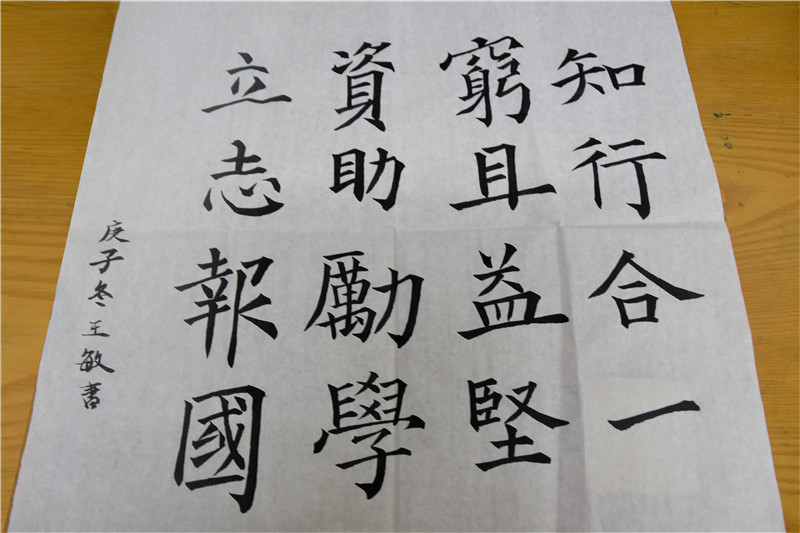 知行合一
窮且益堅
資助勵學
立志報國
庚子冬王敏書